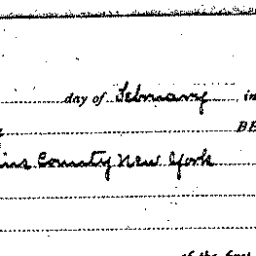 day of February, in
BE
ins County New York
of the first